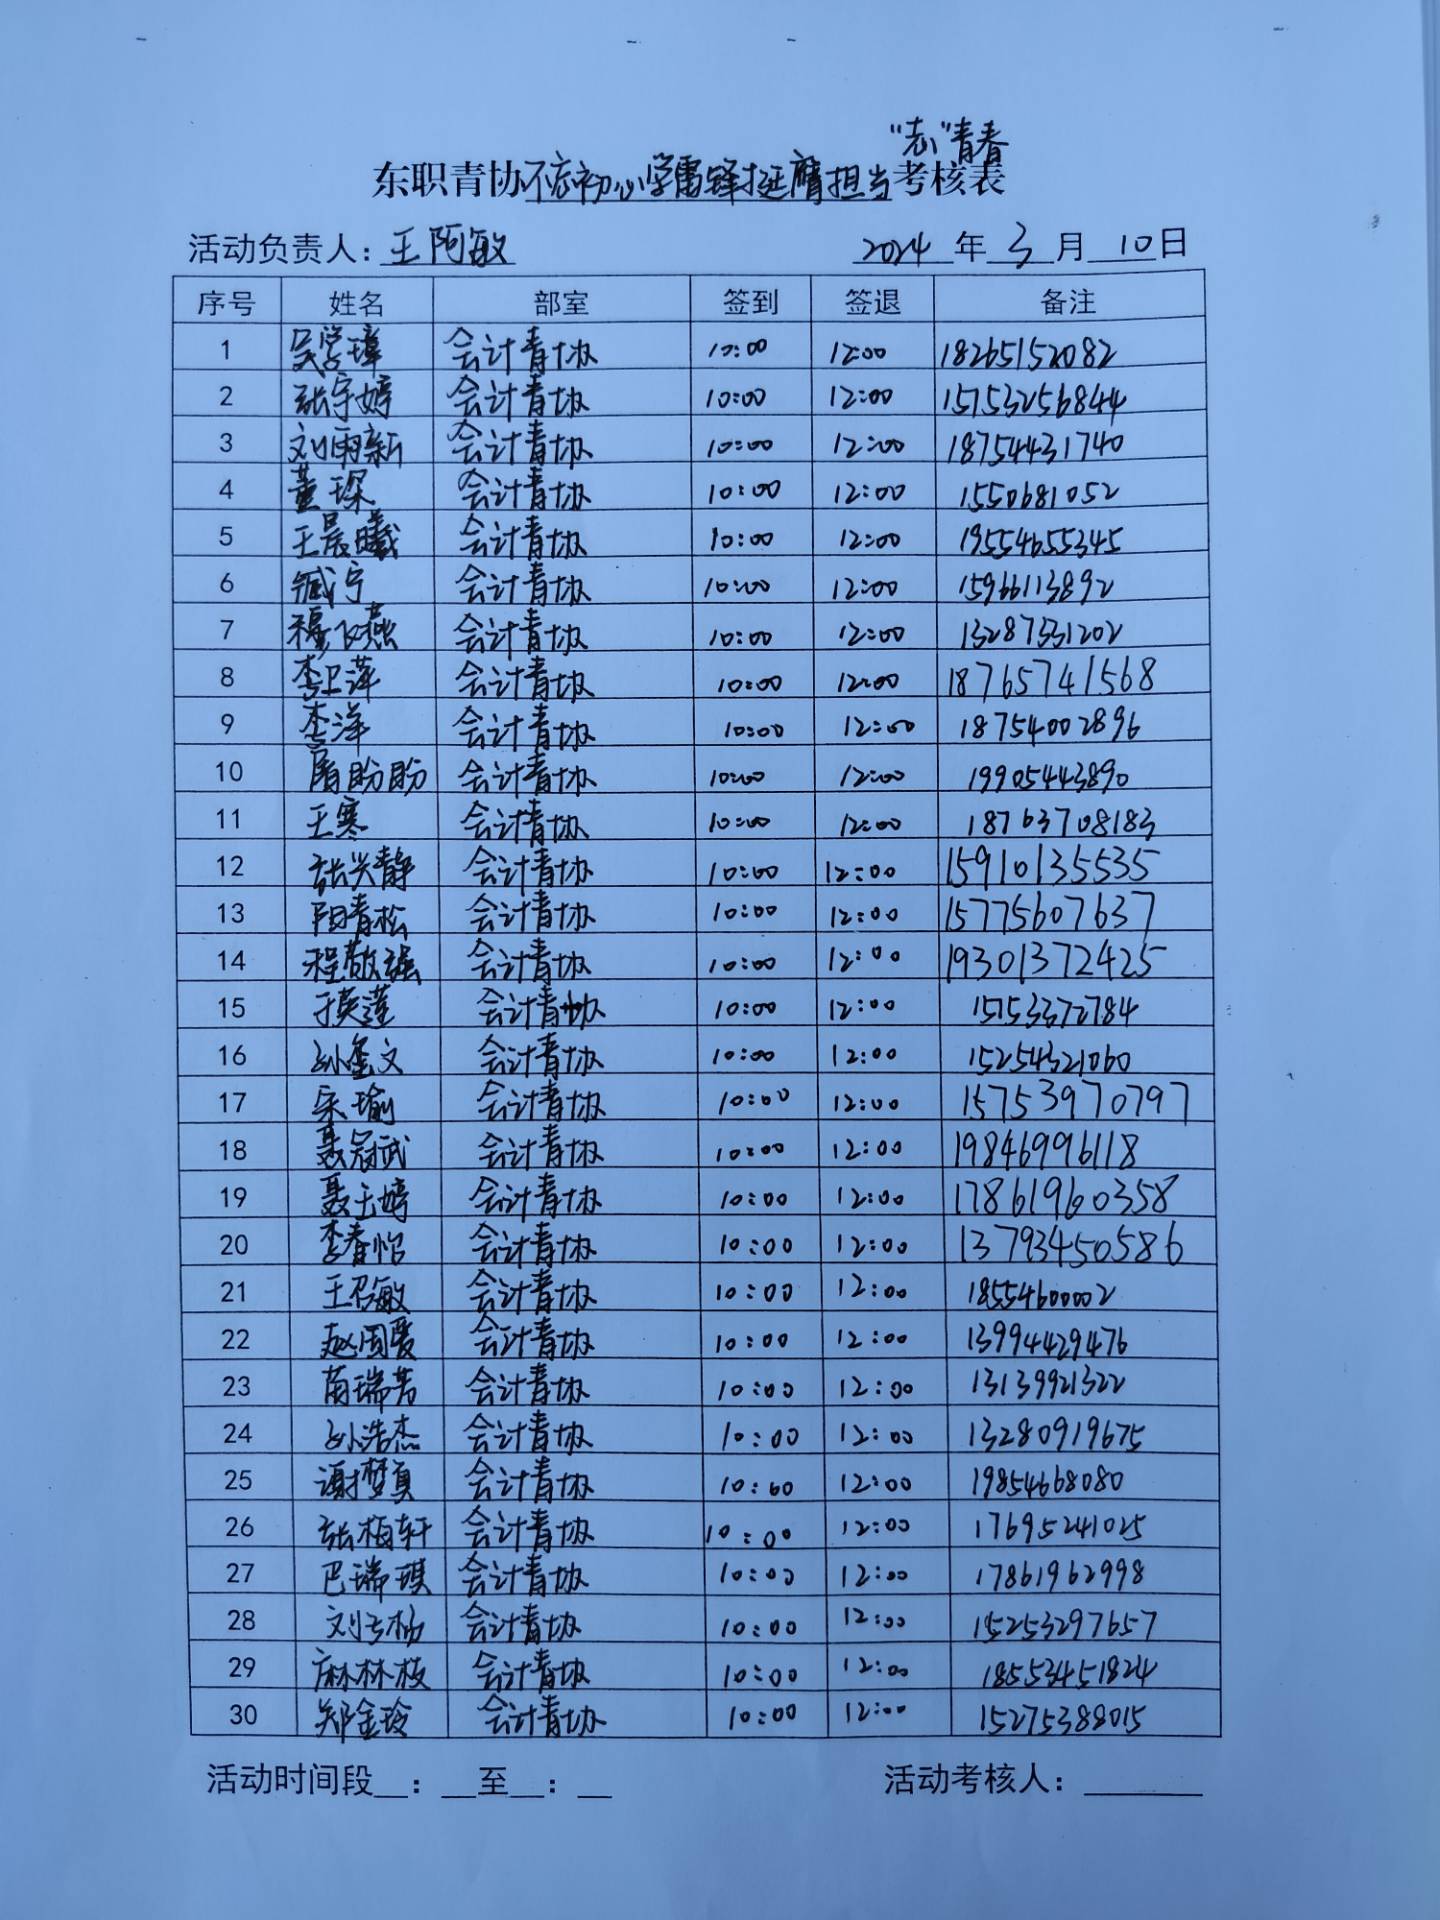 “志”青春
东职青协不忘初心学雷锋挺膺担当考核表
活动负责人：王阿敏 2024年3月10日
序号 姓名 部室 签到 签退 备注
1 吴学璋 会计青协 10:00 12:00 18265152082
2 张宇婷 会计青协 10:00 12:00 15753256844
3 刘雨新 会计青协 10:00 12:00 18754431740
4 董琛 会计青协 10:00 12:00 1550681052
5 王晨曦 会计青协 10:00 12:00 19554655345
6 臧宁 会计青协 10:00 12:00 15966113892
7 穆飞燕 会计青协 10:00 12:00 13287331202
8 李卫萍 会计青协 10:00 12:00 18765741568
9 李洋 会计青协 10:00 12:00 18754002896
10 盼盼 会计青协 10:00 12:00 19905443890
11 王寒 会计青协 10:00 12:00 18763708183
12 张兴静 会计青协 10:00 12:00 15910135535
13 阳青松 会计青协 10:00 12:00 15775607637
14 程敬强 会计青协 10:00 12:00 19301372425
15 于英莲 会计青协 10:00 12:00 15153372784
16 孙奎文 会计青协 10:00 12:00 15254321060
17 宋瑜 会计青协 10:00 12:00 15753970797
18 聂冠武 会计青协 10:00 12:00 19846996118
19 聂玉婷 会计青协 10:00 12:00 17861960358
20 李春怡 会计青协 10:00 12:00 13793450586
21 王召敏 会计青协 10:00 12:00 18554600002
22 赵国爱 会计青协 10:00 12:00 13994429476
23 苗瑞芳 会计青协 10:00 12:00 13139921322
24 孙浩杰 会计青协 10:00 12:00 13280919675
25 谢梦真 会计青协 10:00 12:00 19854668080
26 张栢轩 会计青协 10:00 12:00 17695241025
27 巴瑞琪 会计青协 10:00 12:00 17861962998
28 刘杨 会计青协 10:00 12:00 15253297657
29 麻林枝 会计青协 10:00 12:00 18553451824
30 郑金玲 会计青协 10:00 12:00 15275388015
活动时间段__：__至__：__ 活动考核人：______